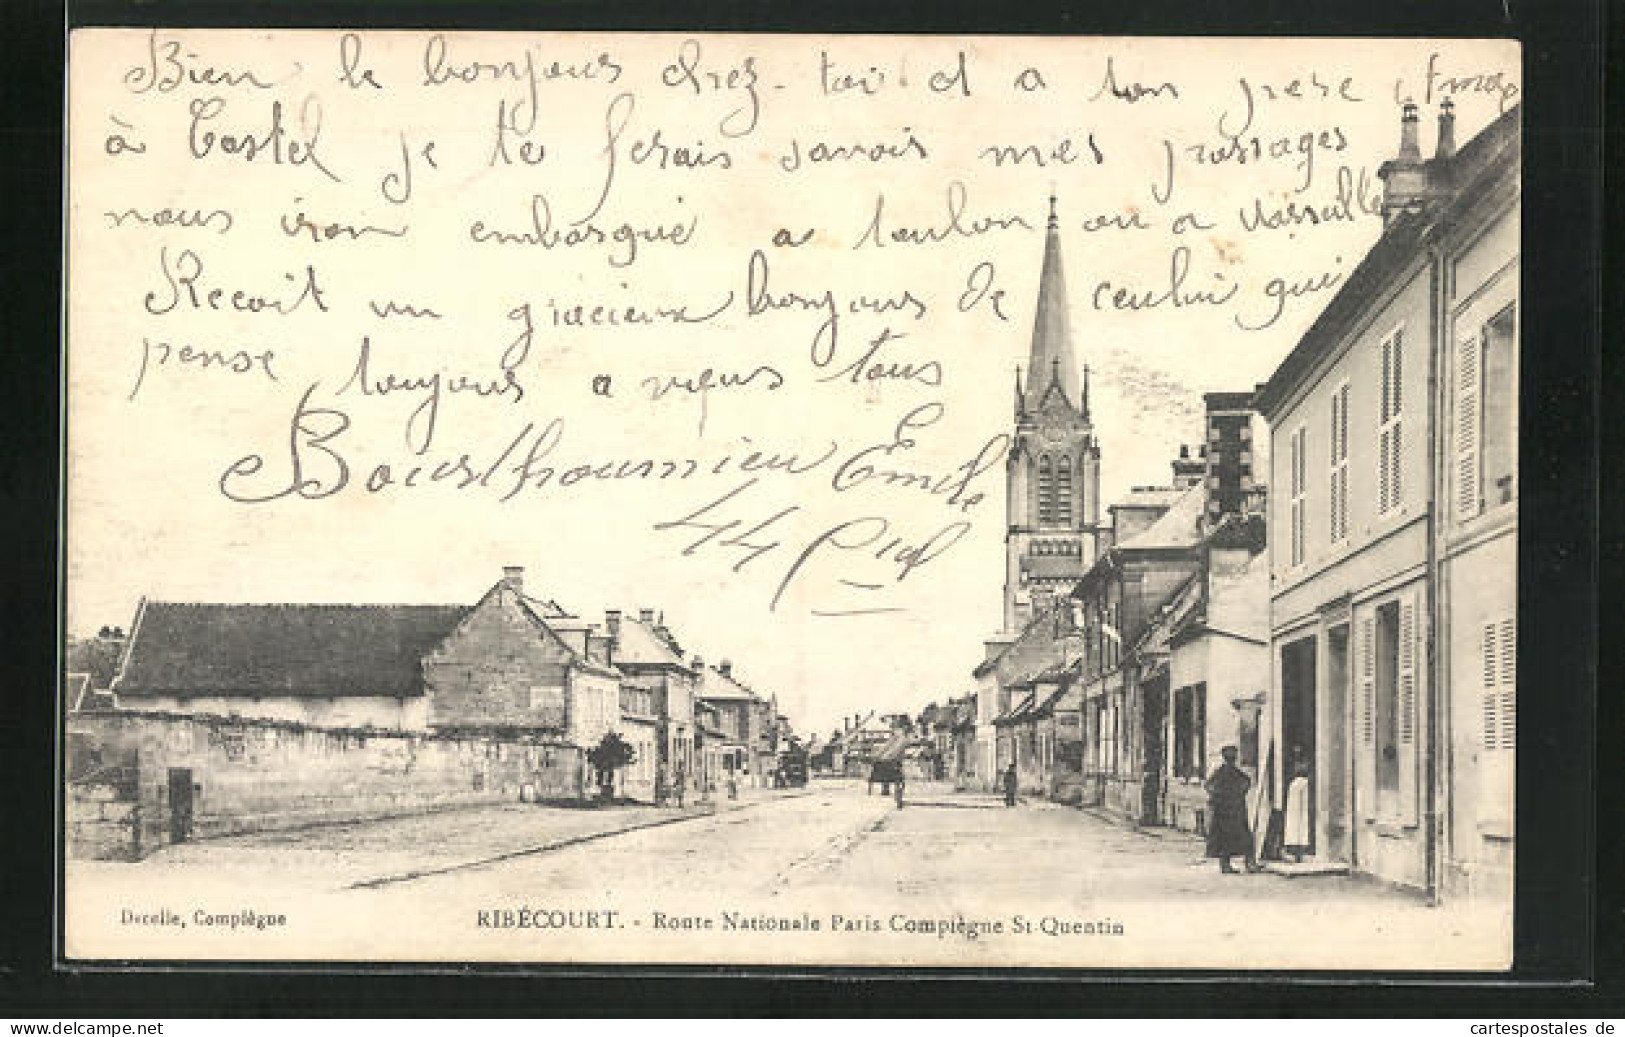 Bien le bonjous chez-toi et a ton pere
à Castel je te ferais savoir mes passages
nous iron embarqué a toulon ou a Marseille
Recoit un gracieux bonjous de ceului qui
pense toujous a vous tous
Emile
44
Decelle, Compiègne
RIBÉCOURT. - Route Nationale Paris Compiègne St-Quentin
www.delcampe.net
cartespostales de